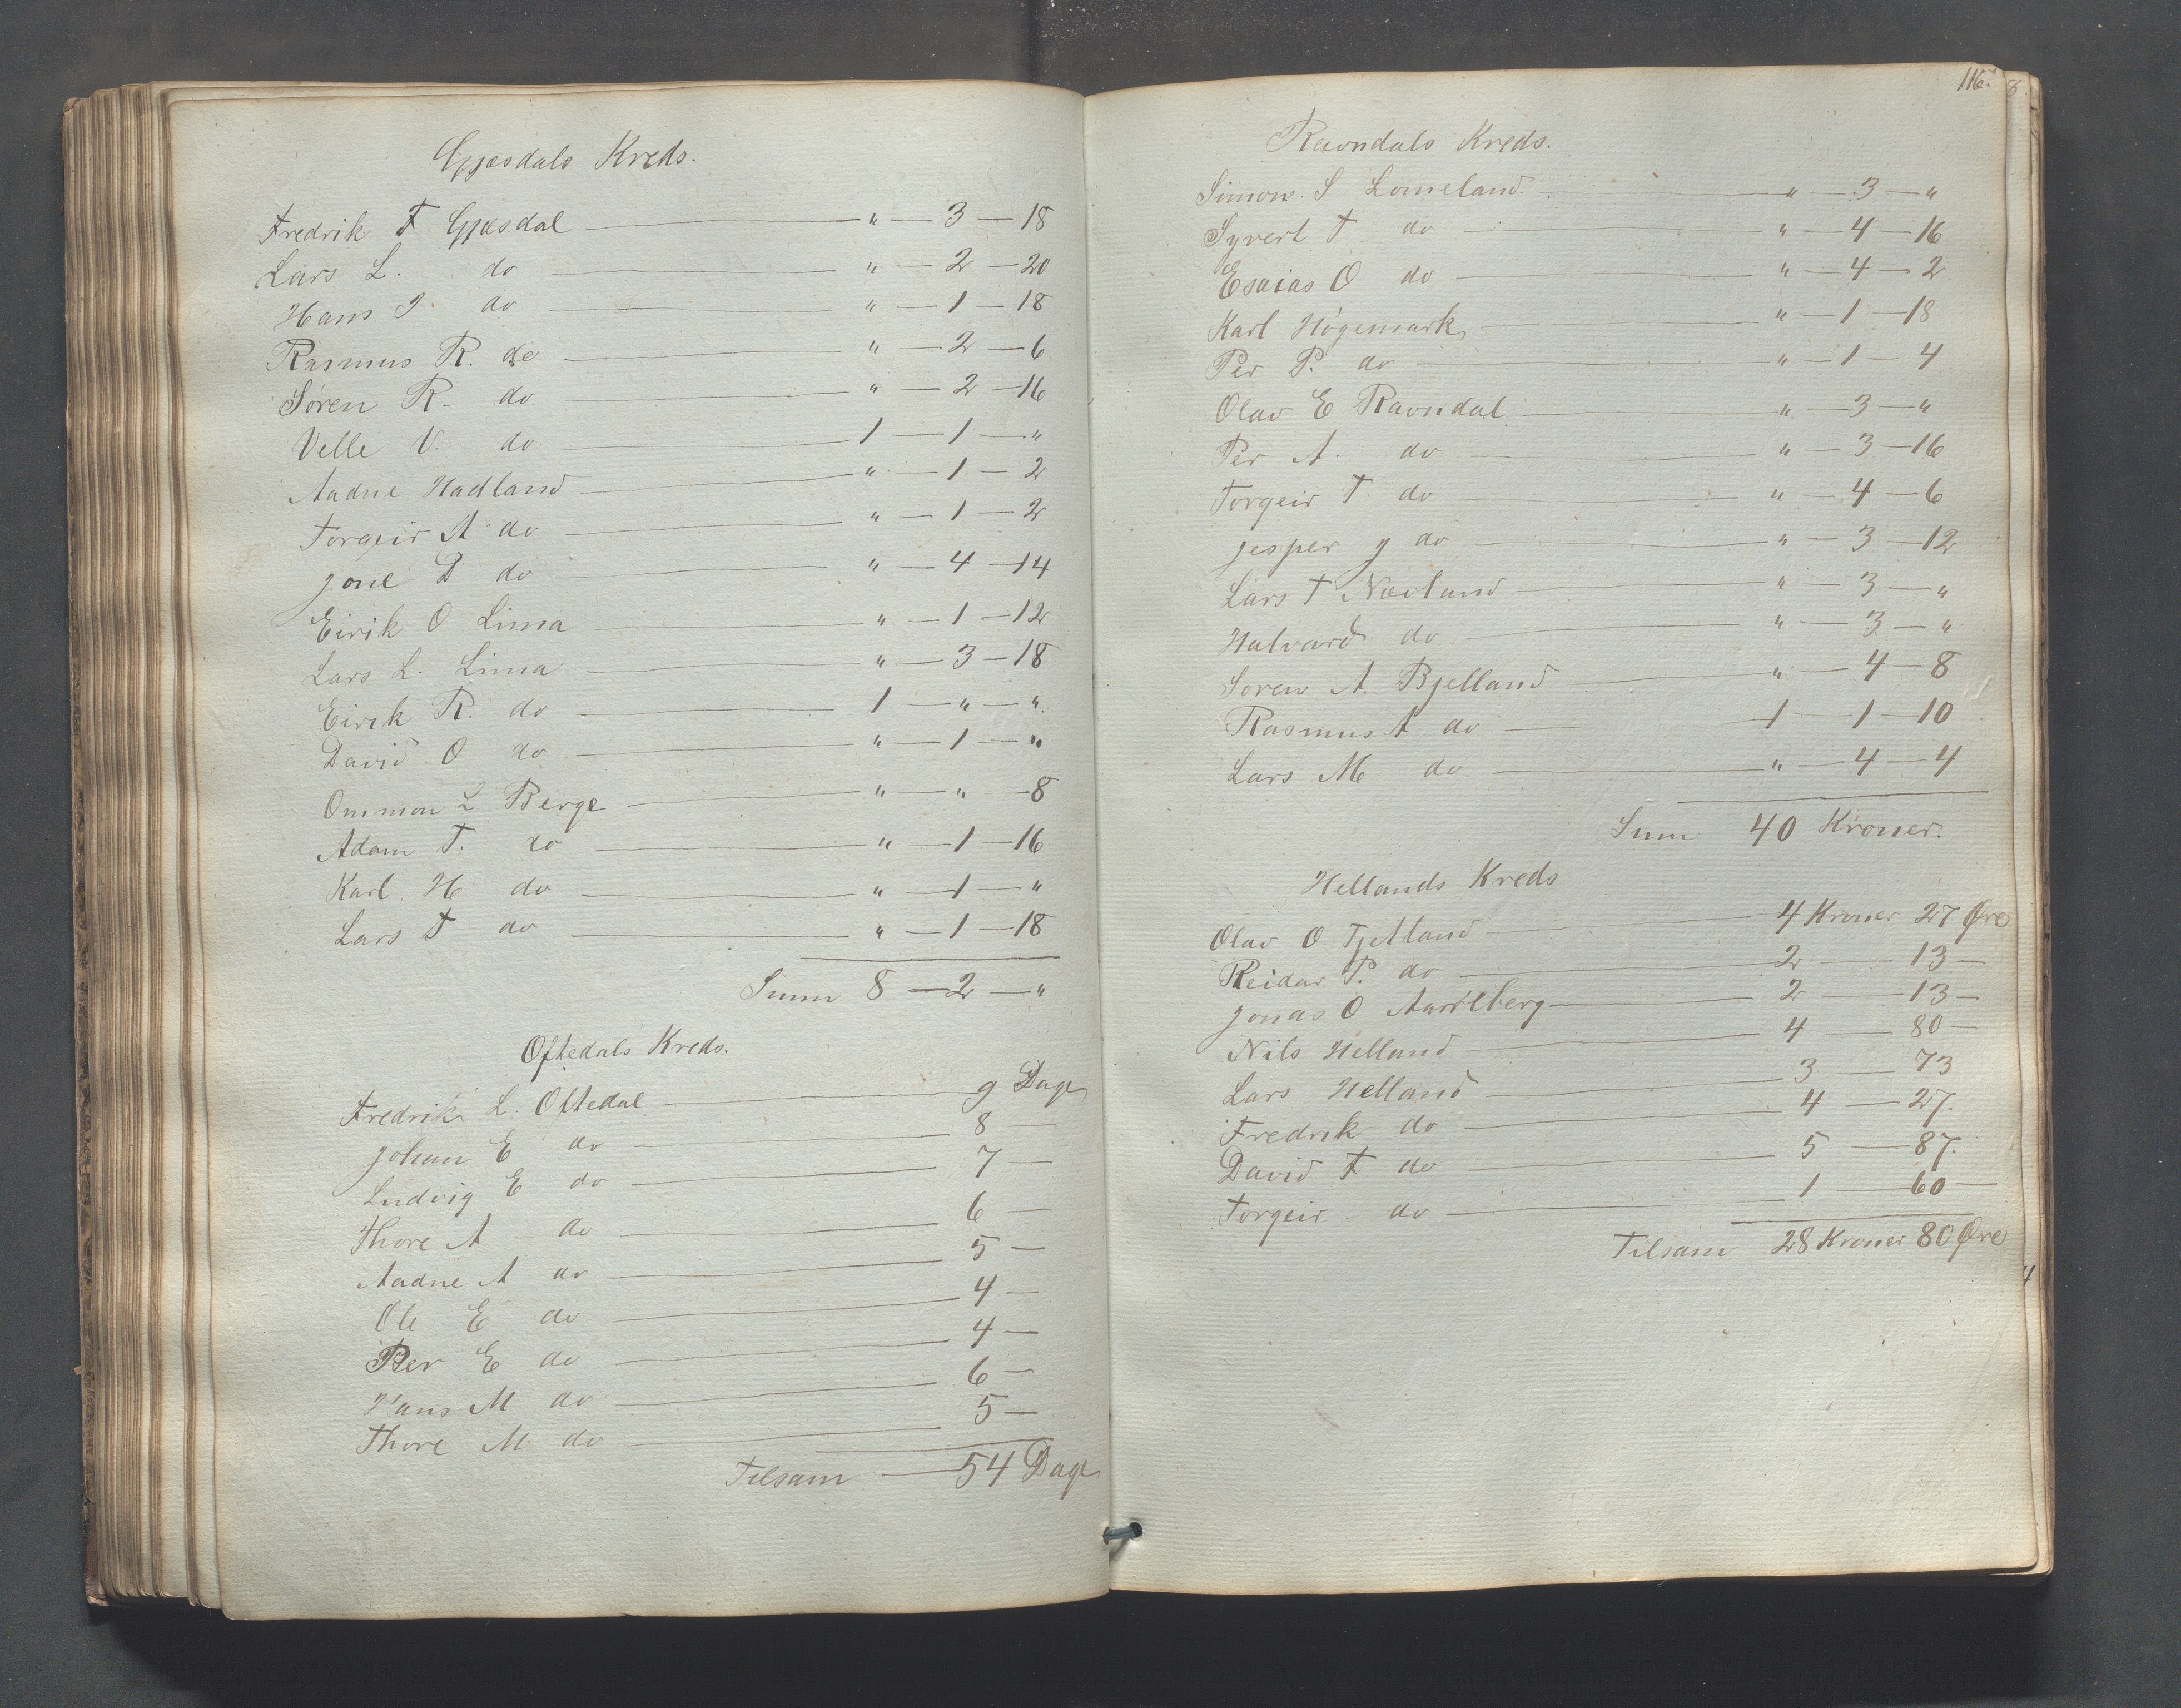 Gjæsdals Kreds.
Fredrik F Gjæsdal — „ — 3 — 18
Lars L. do — „ — 2 — 20
Hans J. do — „ — 1 — 18
Rasmus R. do — „ — 2 — 6
Søren R. do — „ — 2 — 16
Velle V. do — 1 — 1 — „
Aadne Hadland — „ — 1 — 2
Torgeir A do — „ — 1 — 2
Jone D do — „ — 4 — 14
Eirik O Lima — „ — 1 — 12
Lars L. Lima — „ — 3 — 18
Eirik R. do — 1 — „ — „
David O do — „ — 1 — „
Ommon L Berge — „ — „ — 8
Adam T. do — „ — 1 — 16
Karl H do — „ — 1 — „
Lars T do — „ — 1 — 18
Sum 8 — 2 — „
Oftedals Kreds.
Fredrik L. Oftedal — 9 Dage
Johan E do — 8 —
Ludvig E do — 7 —
Thore A do — 6 —
Aadne A do — 5 —
Ole E do — 4 —
Per E do — 4 —
Hans M do — 6 —
Thore M do — 5 —
Tilsam — 54 Dage
116. 8
Ravndals Kreds.
Simon S Lomeland — „ — 3 — „
Syvert T. do — „ — 4 — 16
Esaias O do — „ — 4 — 2
Karl Høgemark — „ — 1 — 18
Per P. do — „ — 1 — 4
Olav E Ravndal — „ — 3 — „
Per A. do — „ — 3 — 16
Torgeir T do — „ — 4 — 6
Jesper J do — „ — 3 — 12
Lars T Nævland — „ — 3 — „
Halvard do — „ — 3 — „
Søren A. Bjelland — „ — 4 — 8
Rasmus A do — 1 — 1 — 10
Lars M do — „ — 4 — 4
Sum 40 Kroner.
Hellands Kreds
Olav O Tjetland — 4 Kroner 27 Øre
Reidar P. do — 2 — 13 —
Jonas O — 2 — 13 —
Nils Helland — 4 — 80 —
Lars Helland — 3 — 73
Fredrik do — 4 — 27.
David T do — 5 — 87.
Torgeir do — 1 — 60 —
Tilsam 28 Kroner 80 Øre